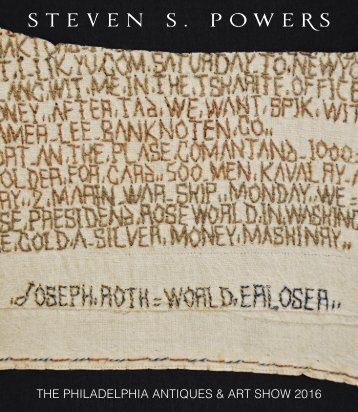 STEVEN S. POWERS
I.T.K. YU.COM.SATURDAY.TO.NEW.YO
ANC.WIT.ME.IN.THE.TSHARITE.OFFIC
ONEY.,AFTER.TAD.WE.WANT.SPIK.WIT
AMER.LEE.BANKNOTEN.CO..
ORT.AN.THE.PLASE.COMANTAND-1000-
OLDER.FOR.GARD.,500 MEN.KAVALRY
AY.,2.MARIN.WAR-SHIP.,MONDAY.WE=
SE.PRESIDEND.ROSE.WORLD.IN.WASHIN
E.GOLD.A-SILVER.MONEY.MASHINAY..
.JOSEPH.ROTH=WORLD.ERLOSER..
THE PHILADELPHIA ANTIQUES & ART SHOW 2016